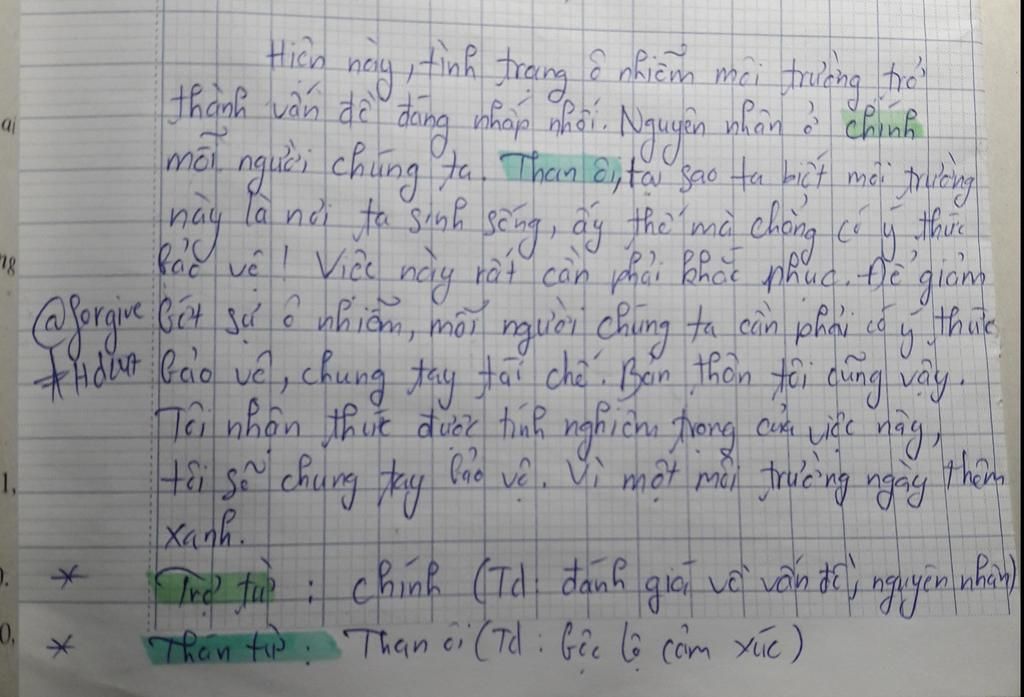 Hiện này, tình trạng ô nhiễm môi trường trở
thành vấn đề đáng nhấp nhối. Nguyên nhân ở chính
mỗi người chúng ta. Than ôi, tại sao ta biết môi trường
này là nơi ta sinh sống, ấy thế mà chẳng có ý thức
bảo vệ! Việc này rất cần phải khắc phục. Để giảm
@forgive bớt sự ô nhiễm, mỗi người chúng ta cần phải có ý thức
bảo vệ, chung tay tái chế. Bản thân tôi cũng vậy.
Tôi nhận thức được tính nghiêm trọng của việc này,
tôi sẽ chung tay bảo vệ. Vì một môi trường ngày thêm
xanh.
* Trợ từ : chính (Td : đánh giá về vấn đề, nguyên nhân)
* Thán từ : Than ôi (Td : bộc lộ cảm xúc)